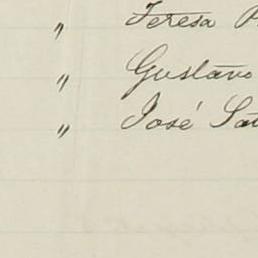 " Teresa
" Gustavo
" José